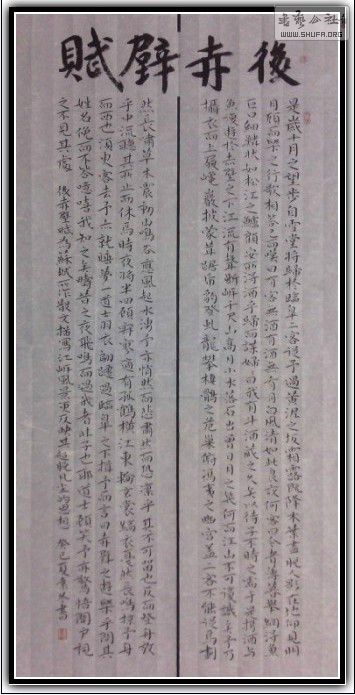 書藝公社
WWW.SHUFA.ORG
後赤壁賦
是歲十月之望步自雪堂將歸於臨皋二客從予過黃泥之坂霜露既降木葉盡脫人影在地仰見明
月顧而樂之行歌相答已而嘆曰有客無酒有酒無肴月白風清如此良夜何客曰今者薄暮舉網得魚
巨口細鱗狀如松江之鱸顧安所得酒乎歸而謀婦婦曰我有斗酒藏之久矣以待子不時之需於是攜酒與
魚復遊於赤壁之下江流有聲斷岸千尺山高月小水落石出曾日月之幾何而江山不可復識矣予乃
攝衣而上履巉巖披蒙茸踞虎豹登虬龍攀棲鶻之危巢俯馮夷之幽宮蓋二客不能從焉劃
然長嘯草木震動山鳴谷應風起水湧予亦悄然而悲肅然而恐凜乎其不可留也反而登舟放
乎中流聽其所止而休焉時夜將半四顧寂寥適有孤鶴橫江東輪玄裳縞衣戛然長鳴掠予舟
而西也須臾客去予亦就睡夢一道士羽衣翩躚過臨皋之下揖予而言曰赤壁之遊樂乎問其
姓名俛而不答噫嘻我知之矣疇昔之夜飛鳴而過我者非子也耶道士顧笑予亦驚悟開戶視
之不見其處 後赤壁賦為蘇軾所作散文描寫江岸風景更反映其超脫的思想 癸巳夏書